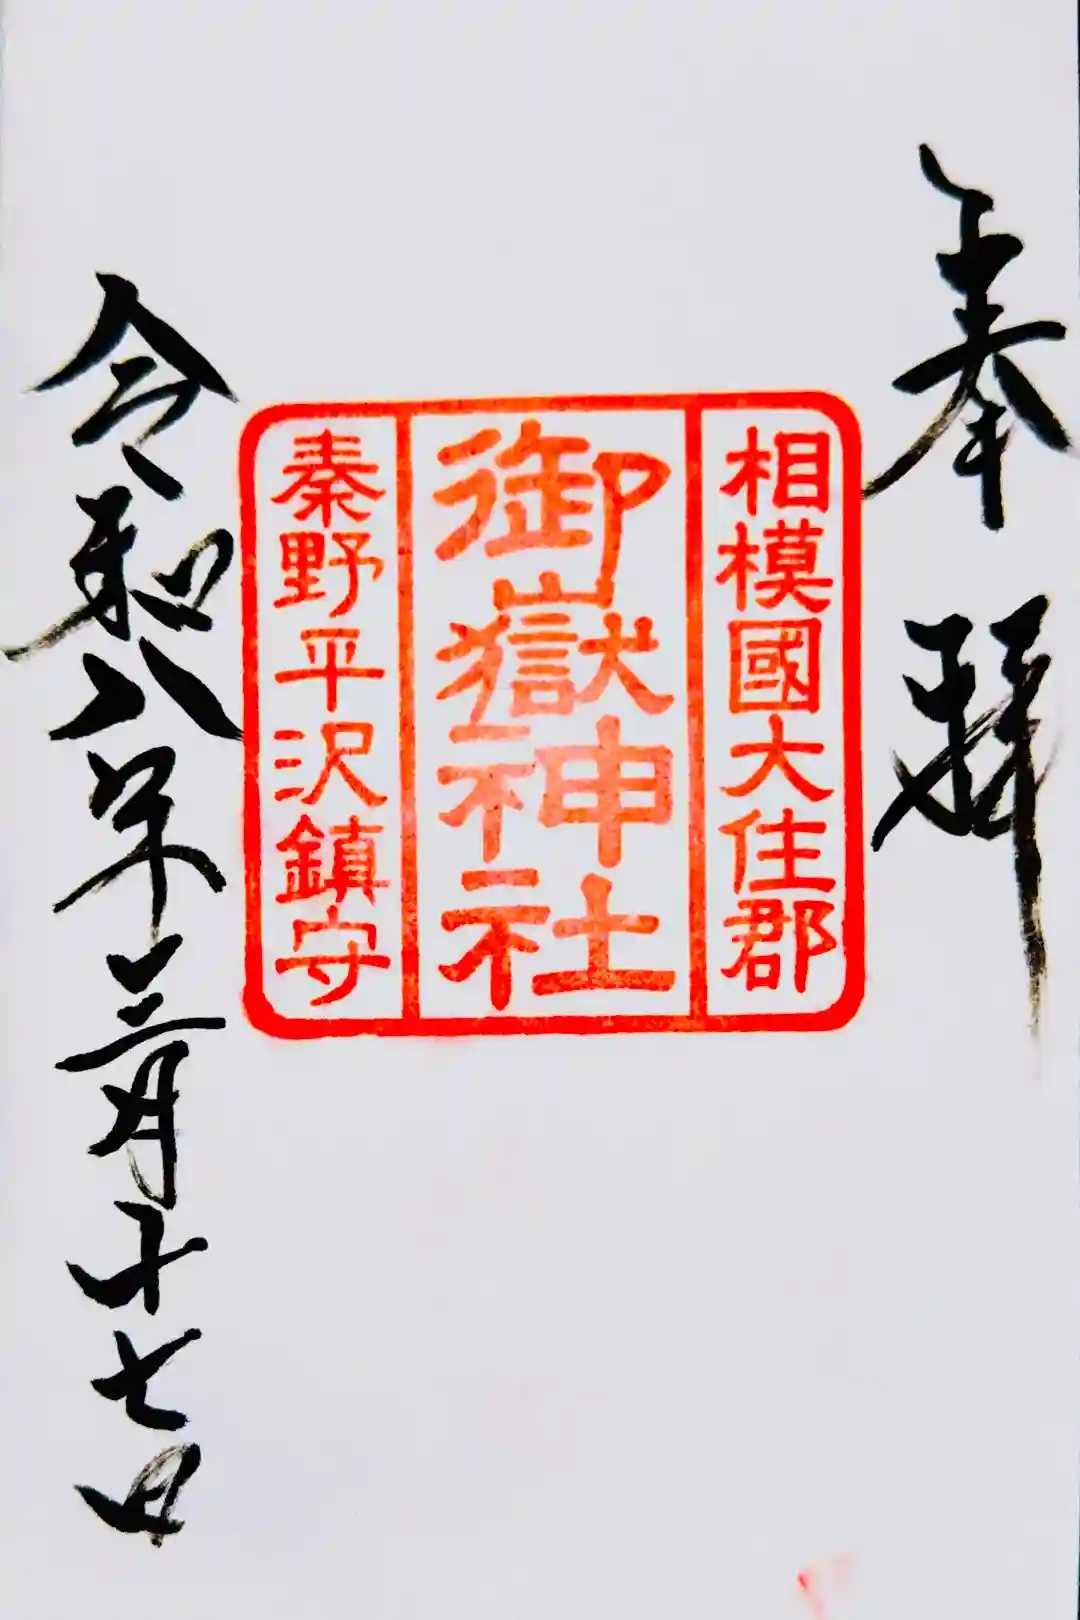 奉拝
相模國大住郡
御嶽神社
秦野平沢鎮守
令和八年三月十七日